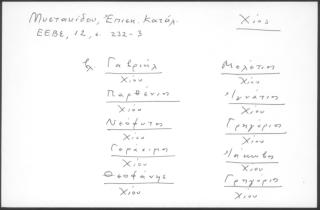 Μυσταιίδου, Ἐπισκ. Κατάλ.
Χίος
ΕΕΒΣ, 12, σ. 232-3
Γαβριήλ
Χίου
Παρθένιος
Χίου
Νεόφυτος
Χίου
Γεράσιμος
Χίου
Θεοφάνης
Χίου
Μελέτιος
Χίου
Ἰγνάτιος
Χίου
Γρηγόριος
Χίου
Ἰάκωβος
Χίου
Γρηγόριος
Χίου